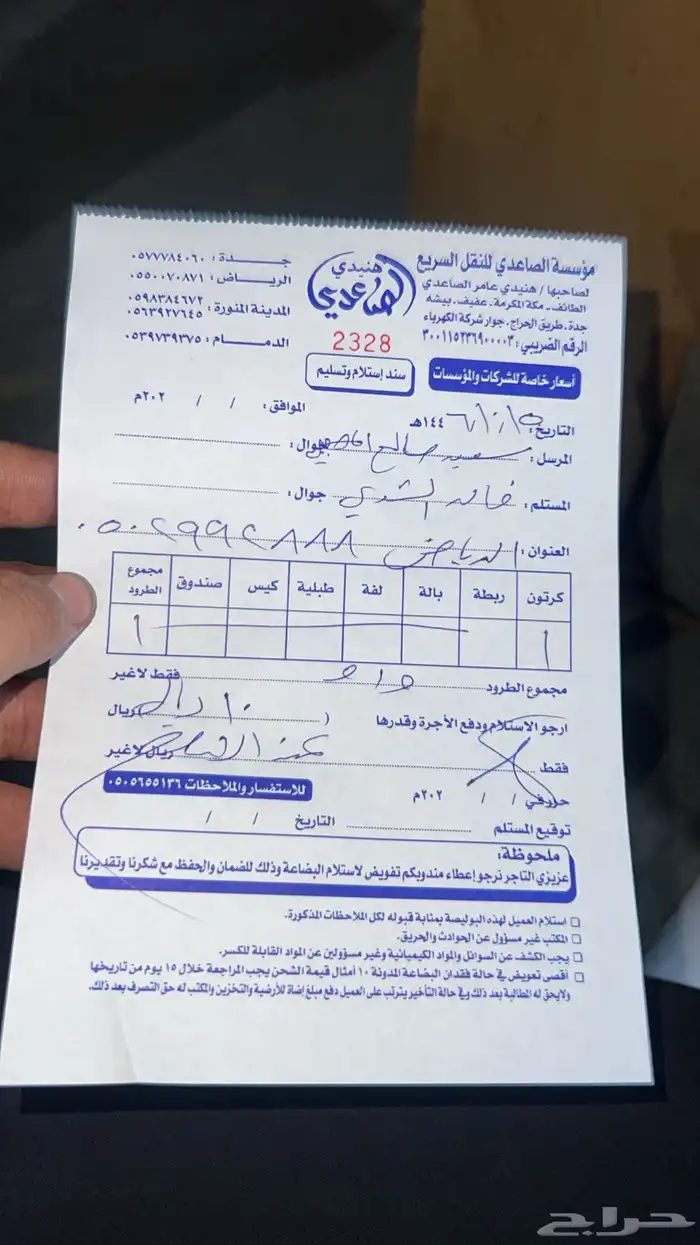 مؤسسة الصاعدي للنقل السريع
لصاحبها / هنيدي عامر الصاعدي
الطائف - مكة المكرمة - عفيف - بيشه
جدة - طريق الحراج - جوار شركة الكهرباء
الرقم الضريبي: ٣٠٠١١٥٢٣٦٩٠٠٠٠٣
هنيدي
الصاعدي
2328
جدة : ٠٥٧٧٧٨٤٠٦٠
الرياض : ٠٥٥٠٠٧٠٨٧١
المدينة المنورة : ٠٥٩٨٣٨٤٦٧٢
٠٥٦٣٩٢٧٦٤٥
الدمام : ٠٥٣٩٧٣٩٣٧٥
أسعار خاصة للشركات والمؤسسات
سند إستلام وتسليم
التاريخ: ١٤٤ هـ الموافق: / / ٢٠٢م
المرسل : سعيد صالح جوال :
المستلم : خالد جوال :
العنوان : الرياض ٠٥٠٢٩٩٢٨٨٨
كرتون ربطة بالة لفة طبلية كيس صندوق مجموع الطرود
١ ١
مجموع الطرود فقط لاغير
ارجو الاستلام ودفع الأجرة وقدرها ( ١٠ ريال ) ريال
فقط ريال لاغير
حرر في / / ٢٠٢م للاستفسار والملاحظات ٠٥٠٥٦٥٥١٣٦
توقيع المستلم التاريخ / /
ملحوظة:
عزيزي التاجر نرجو إعطاء مندوبكم تفويض لاستلام البضاعة وذلك للضمان والحفظ مع شكرنا وتقديرنا
استلام العميل لهذه البوليصة بمثابة قبوله لكل الملاحظات المذكورة.
المكتب غير مسؤول عن الحوادث والحريق.
يجب الكشف عن السوائل والمواد الكيميائية وغير مسؤولين عن المواد القابلة للكسر.
أقصى تعويض في حالة فقدان البضاعة المدونة ١٠ أمثال قيمة الشحن يجب المراجعة خلال ١٥ يوم من تاريخها
ولايحق له المطالبة بعد ذلك وفي حالة التأخير يترتب على العميل دفع مبلغ إضافة للأرضية والتخزين والمكتب له حق التصرف بعد ذلك.
حراج